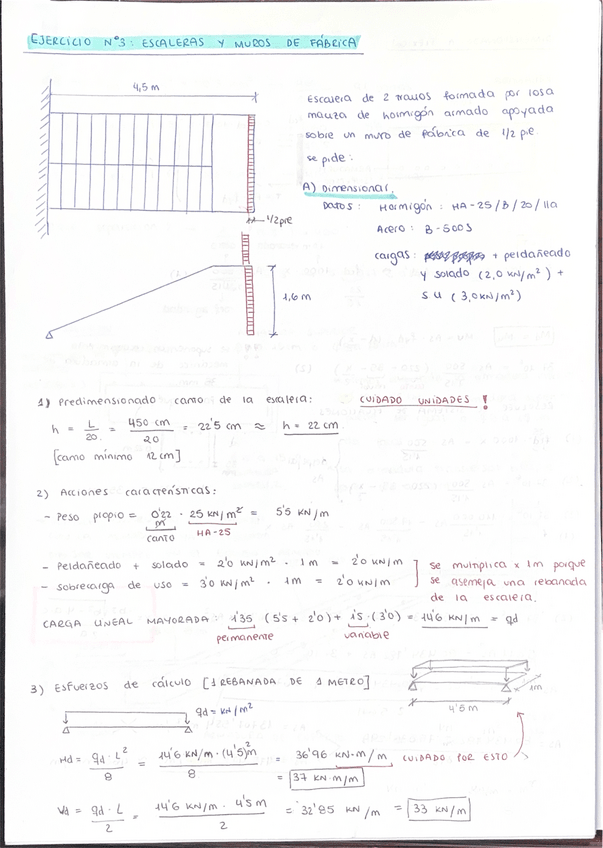 EJERCICIO Nº3: ESCALERAS Y MUROS DE FÁBRICA
4,5 m
Escalera de 2 tramos formada por losa
maciza de hormigón armado apoyada
sobre un muro de fábrica de 1/2 pie.
se pide:
A) Dimensionar.
DATOS: Hormigón: HA-25/B/20/IIa
Acero: B-500S
cargas: + peldañeado
y solado (2,0 KN/m²) +
S U (3,0 KN/m²)
1/2 pie
1,6 m
1) Predimensionado canto de la escalera: CUIDADO UNIDADES!
h = L/20 = 450 cm/20 = 22'5 cm ≈ h = 22 cm
[canto mínimo 12 cm]
2) Acciones características:
- Peso propio = 0'22 m · 25 KN/m² = 5'5 KN/m
canto HA-25
- Peldañeado + solado = 2'0 KN/m² · 1m = 2'0 KN/m
- sobrecarga de uso = 3'0 KN/m² · 1m = 2'0 KN/m
se multiplica x 1m porque
se asemeja una rebanada
de la escalera.
CARGA LINEAL MAYORADA: 1'35 (5'5 + 2'0) + 1'5 · (3'0) = 14'6 KN/m = qd
permanente variable
3) Esfuerzos de cálculo [1 REBANADA DE 1 METRO]
1m
4'5 m
qd = KN/m²
Md = qd · L²/8 = 14'6 KN/m · (4'5)²m/8 = 36'96 KN·m/m CUIDADO POR ESTO
= 37 KN·m/m
Vd = qd · L/2 = 14'6 KN/m · 4'5 m/2 = 32'85 KN/m = 33 KN/m